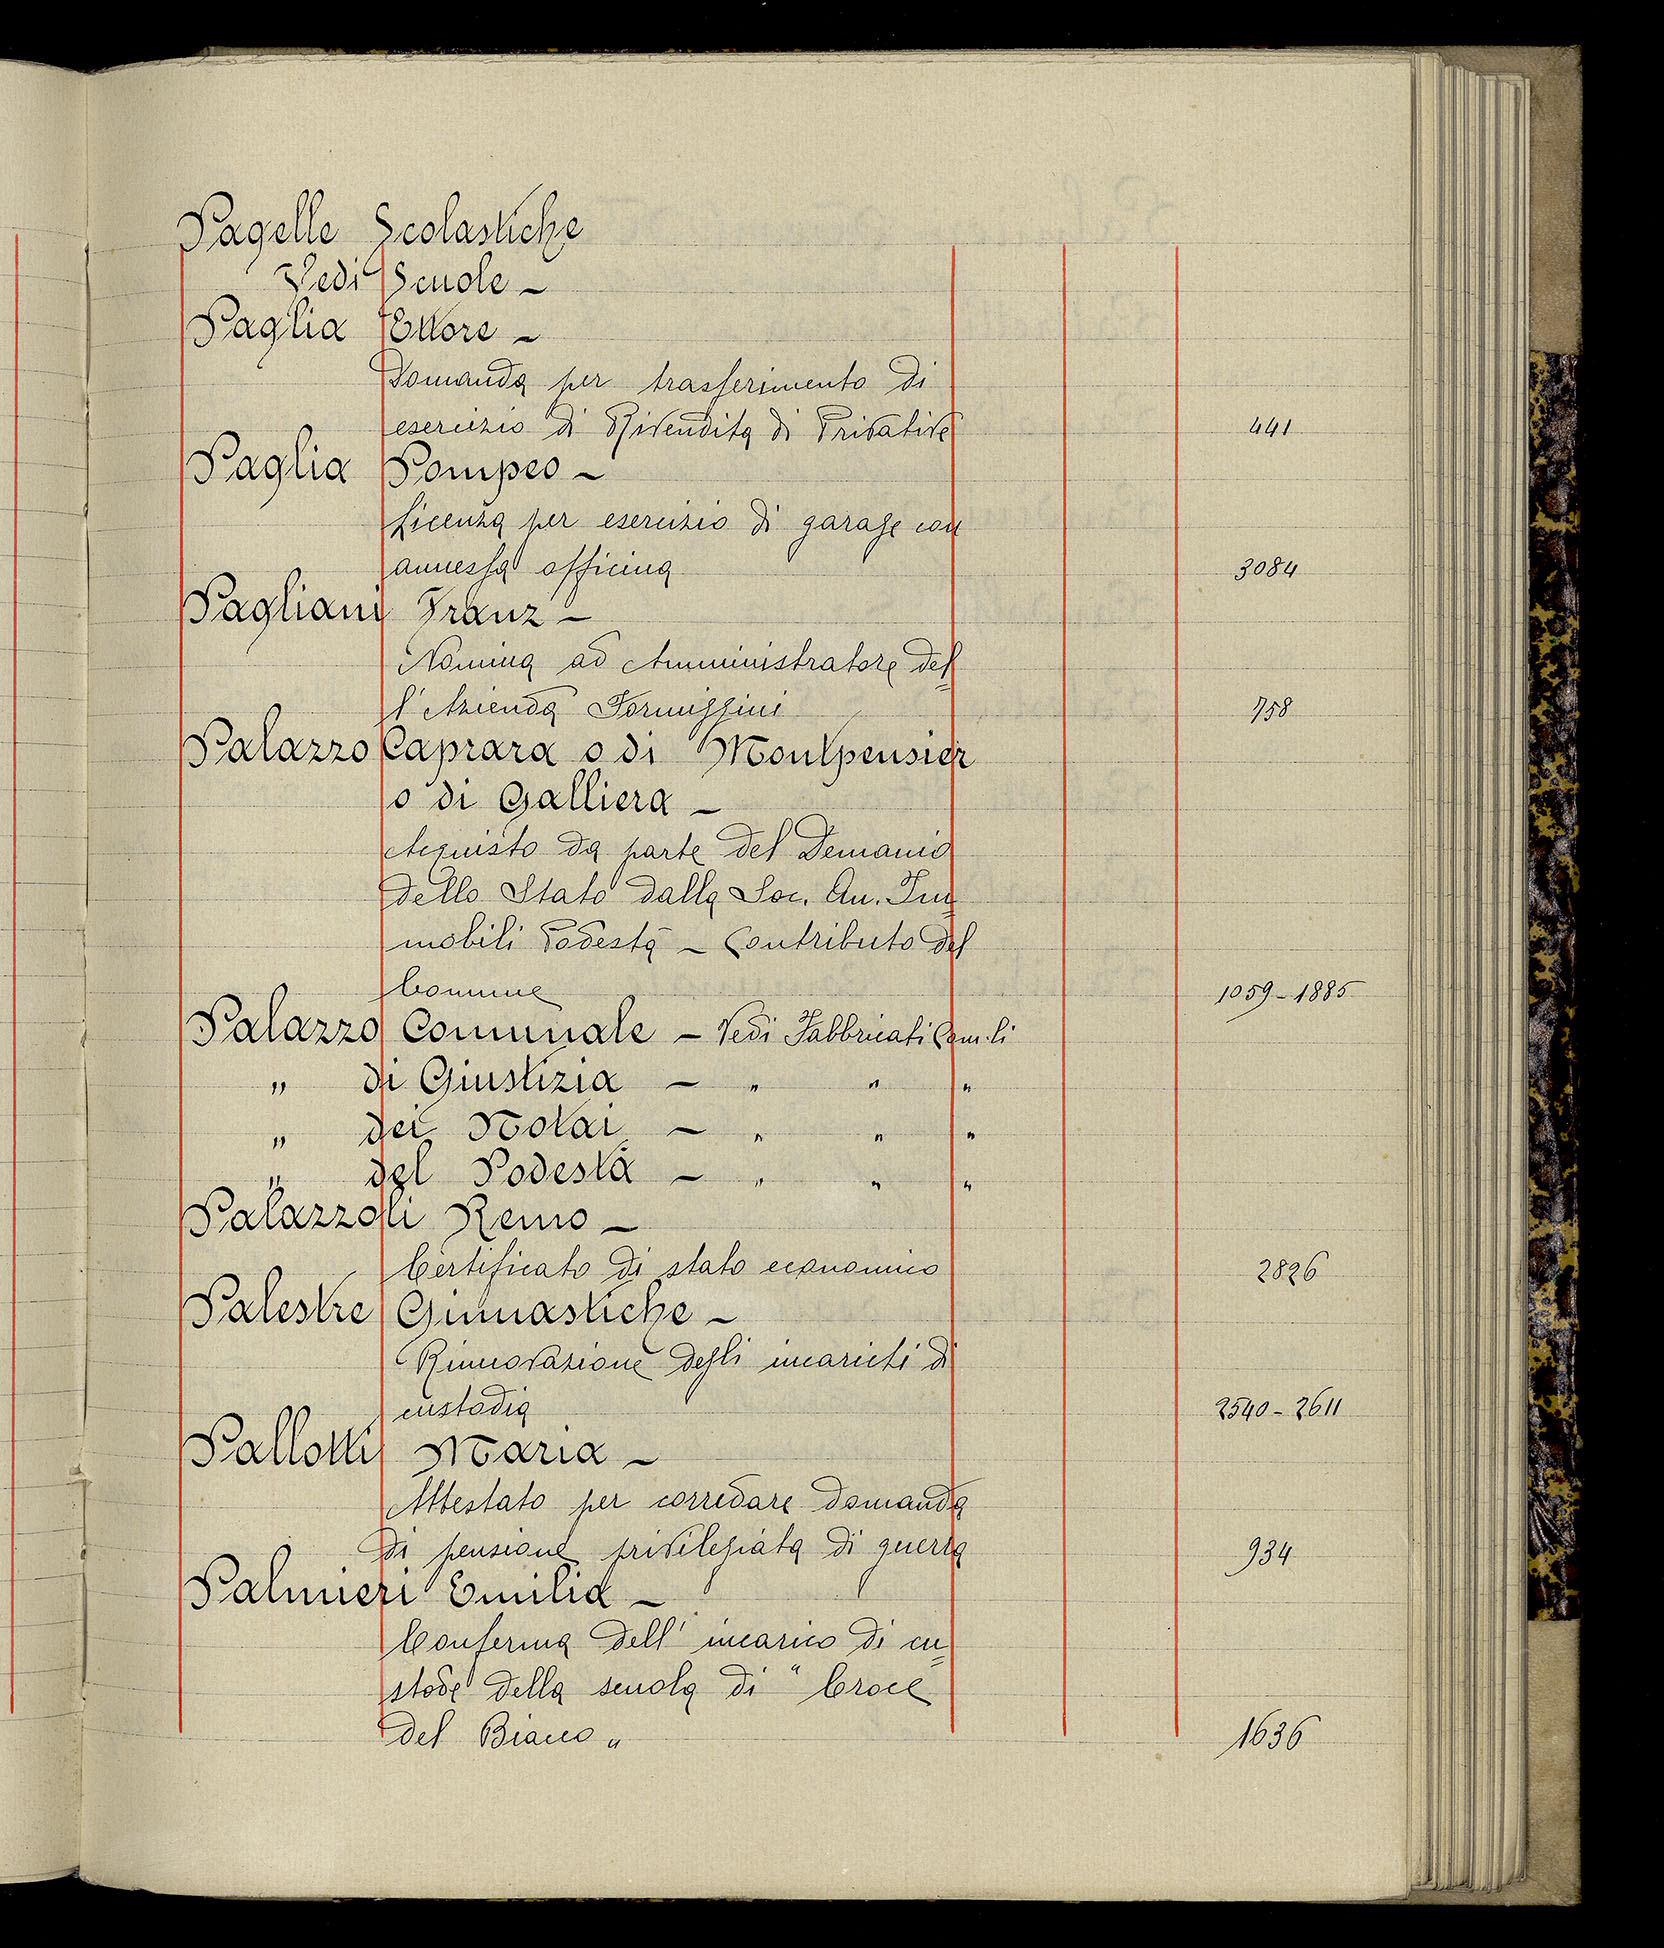 Pagelle Scolastiche
Vedi Scuole –
Paglia Ettore –
Domanda per trasferimento di
esercizio di Rivendita di Privative 441
Paglia Pompeo –
Licenza per esercizio di garage con
annessa officina 3084
Pagliani Franz –
Nomina ad Amministratore del=
l'Azienda Formiggini 758
Palazzo Caprara o di Montpensier
o di Galliera –
Acquisto da parte del Demanio
dello Stato dalla Soc. An. Im=
mobili Podestà – Contributo del
Comune 1059 – 1885
Palazzo Comunale – Vedi Fabbricati Com.li
„ di Giustizia – „ „ „
„ dei Notai – „ „ „
„ del Podestà – „ „ „
Palazzoli Remo –
Certificato di stato economico 2826
Palestre Ginnastiche –
Rinnovazione degli incarichi di
custodia 2540 – 2611
Pallotti Maria –
Attestato per corredare domanda
di pensione privilegiata di guerra 934
Palmieri Emilia –
Conferma dell'incarico di cu=
stode della scuola di "Croce
del Biacco„ 1636